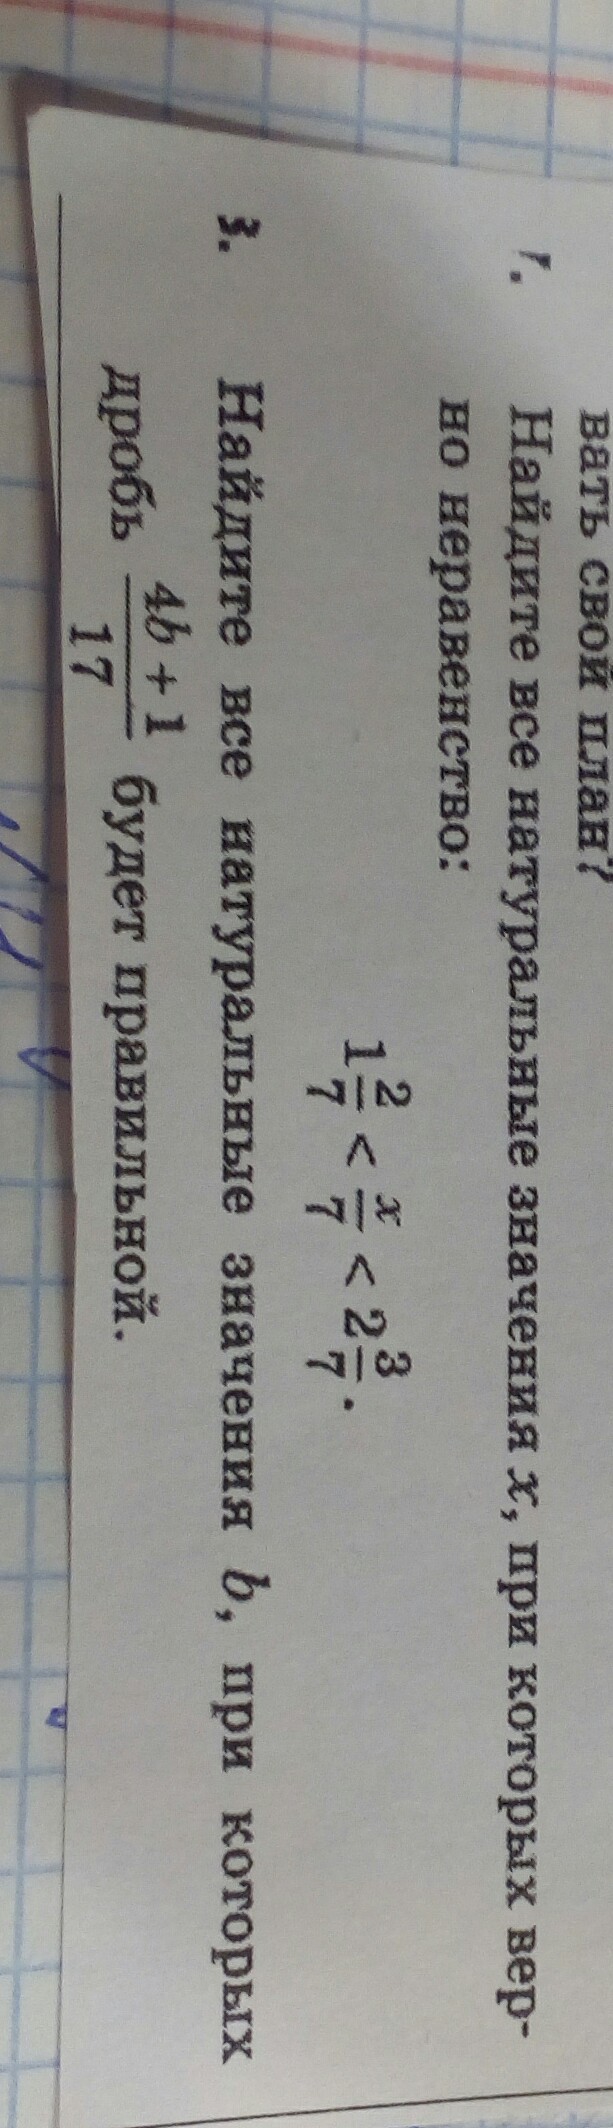 вать свой план?
Найдите все натуральные значения x, при которых вер-
но неравенство:
1 2/7 < x/7 < 2 3/7.
Найдите все натуральные значения b, при которых
дробь (4b + 1)/17 будет правильной.